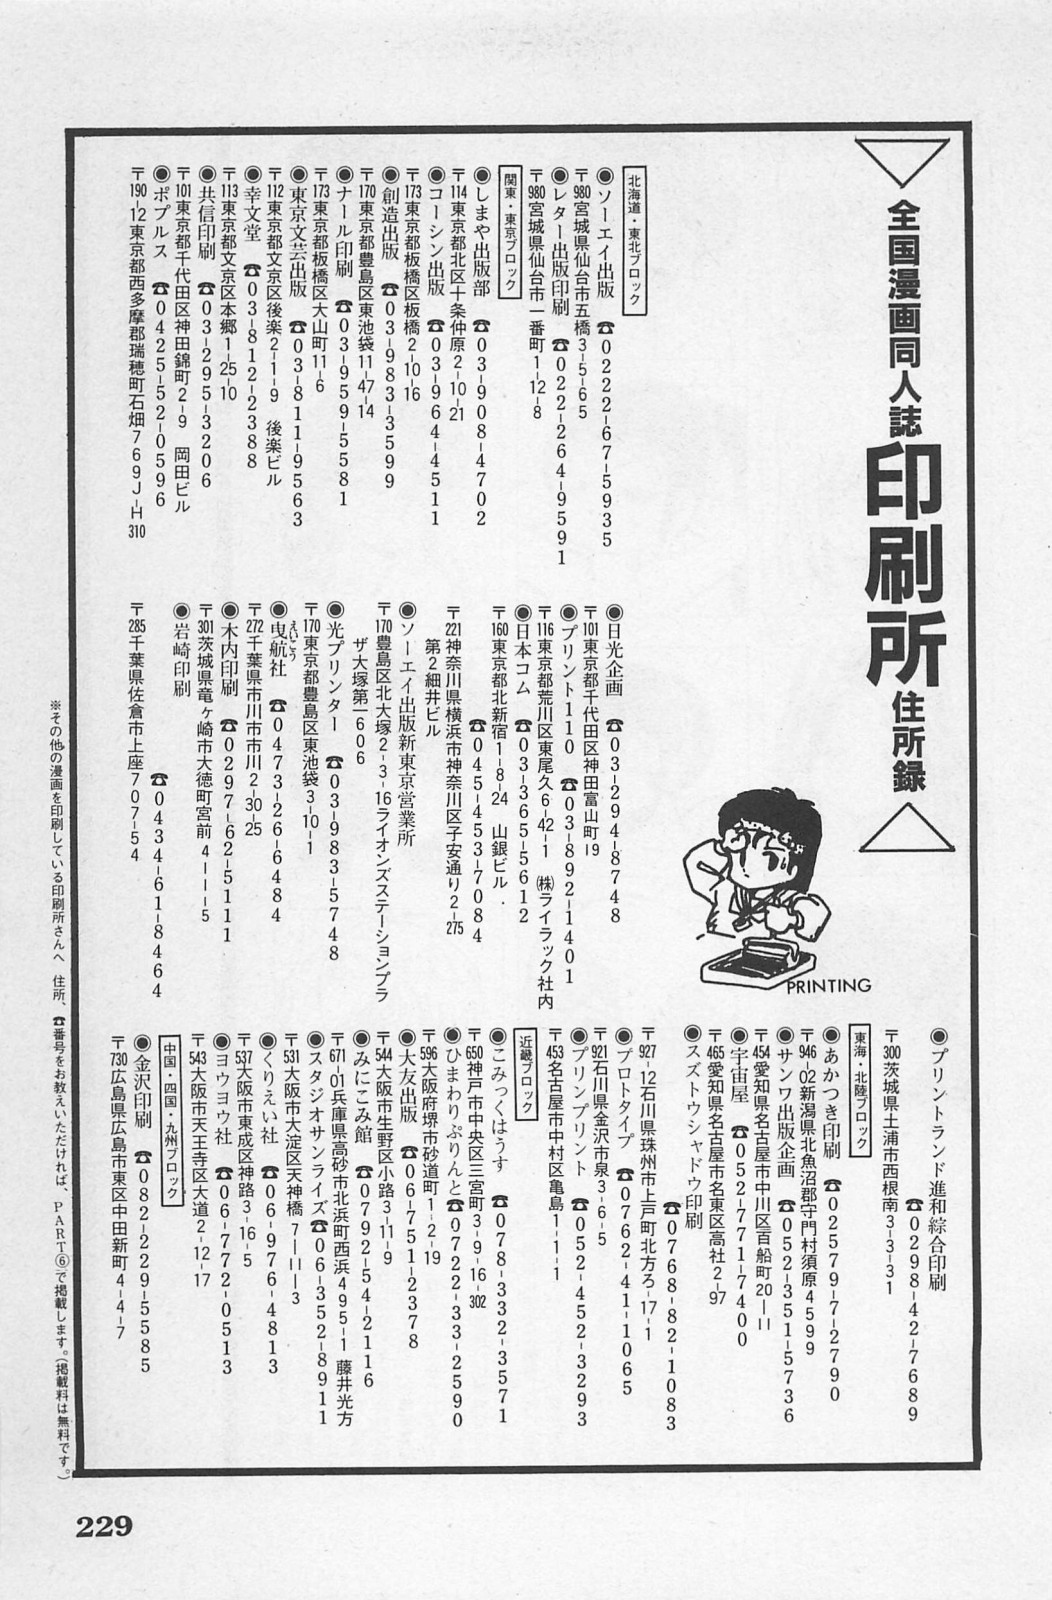 全国漫画同人誌印刷所住所録
PRINTING
北海道・東北ブロック
●ソーエイ出版 ☎0222-67-5935
〒980宮城県仙台市五橋3-5-65
●レター出版印刷 ☎022-264-9591
〒980宮城県仙台市一番町1-12-8
関東・東京ブロック
●しまや出版部 ☎03-908-4702
〒114東京都北区十条仲原2-10-21
●コーシン出版 ☎03-964-4511
〒173東京都板橋区板橋2-10-16
●創造出版 ☎03-983-3599
〒170東京都豊島区東池袋11-47-14
●ナール印刷 ☎03-959-5581
〒173東京都板橋区大山町11-6
●東京文芸出版 ☎03-811-9563
〒112東京都文京区後楽2-1-9 後楽ビル
●幸文堂 ☎03-812-2388
〒113東京都文京区本郷1-25-10
●共信印刷 ☎03-295-3206
〒101東京都千代田区神田錦町2-9 岡田ビル
●ポプルス ☎0425-52-0596
〒190-12東京都西多摩郡瑞穂町石畑769J-H310
●日光企画 ☎03-294-8748
〒101東京都千代田区神田富山町19
●プリント110 ☎03-892-1401
〒116東京都荒川区東尾久6-42-1 ㈱ライラック社内
●日本コム ☎03-365-5612
〒160東京都北新宿1-8-24 山銀ビル
☎045-453-7084
〒221神奈川県横浜市神奈川区子安通り2-275
第2細井ビル
●ソーエイ出版新東京営業所
〒170豊島区北大塚2-3-16ライオンズステーションプラ
ザ大塚第一606
●光プリンター ☎03-983-5748
〒170東京都豊島区東池袋3-10-1
えいこう
●曳航社 ☎0473-26-6484
〒272千葉県市川市市川2-30-25
●木内印刷 ☎0297-62-5111
〒301茨城県竜ヶ崎市大徳町宮前4ーーー5
●岩崎印刷
☎0434-61-8464
〒285千葉県佐倉市上座707-54
●プリントランド進和綜合印刷
☎0298-42-7689
〒300茨城県土浦市西根南3-3-31
東海・北陸ブロック
●あかつき印刷 ☎02579-7-2790
〒946-02新潟県北魚沼郡守門村須原4599
●サンワ出版企画 ☎052-351-5736
〒454愛知県名古屋市中川区百船町20-11
●宇宙屋 ☎052-771-7400
〒465愛知県名古屋市名東区高社2-97
●スズトウシャドウ印刷
☎0768-82-1083
〒927-12石川県珠州市上戸町北方ろ-17-1
●プロトタイプ ☎0762-41-1065
〒921石川県金沢市泉3-6-5
●プリンプリント ☎052-452-3293
〒453名古屋市中村区亀島1-1-1
近畿ブロック
●こみっくはうす ☎078-332-3571
〒650神戸市中央区三宮町3-9-16-302
●ひまわりぷりんと☎0722-33-2590
〒596大阪府堺市砂道町1-2-19
●大友出版 ☎06-751-2378
〒544大阪市生野区小路3-11-9
●みにこみ館 ☎0792-54-2116
〒671-01兵庫県高砂市北浜町西浜495-1 藤井光方
●スタジオサンライズ☎06-352-8911
〒531大阪市大淀区天神橋7-11-3
●くりえい社 ☎06-976-4813
〒537大阪市東成区神路3-16-5
●ヨウヨウ社 ☎06-772-0513
〒543大阪市天王寺区大道2-12-17
中国・四国・九州ブロック
●金沢印刷 ☎082-229-5585
〒730広島県広島市東区中田新町4-4-7
※その他の漫画を印刷している印刷所さんへ 住所、☎番号をお教えいただければ、PART⑥で掲載します。(掲載料は無料です。)
229